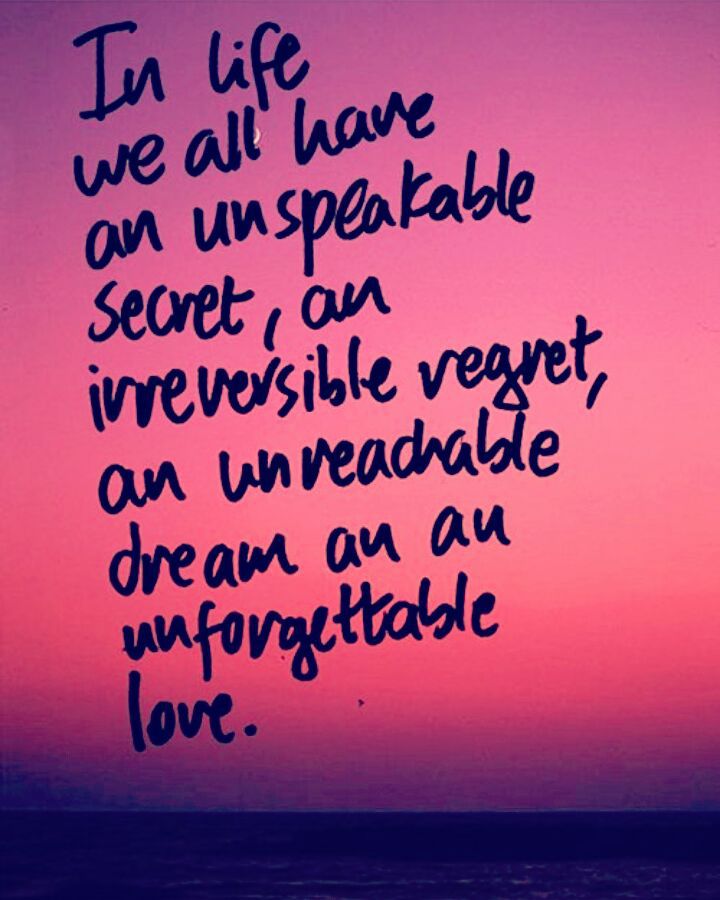 In life
we all have
an unspeakable
secret, an
irreversible regret,
an unreachable
dream an an
unforgettable
love.